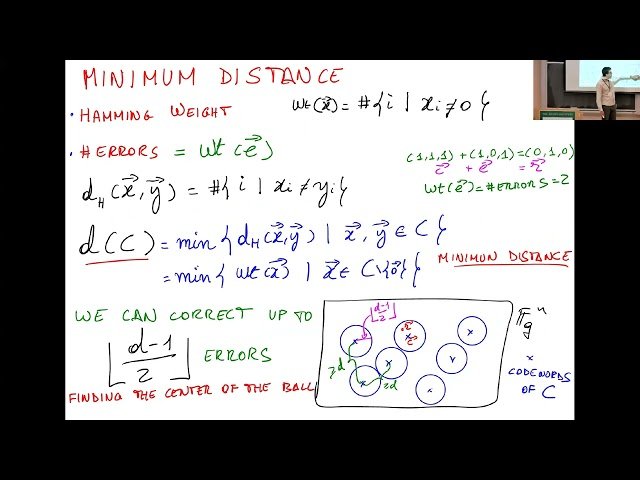 MINIMUM DISTANCE
· HAMMING WEIGHT
wt(x⃗) = #{i | xᵢ ≠ 0}
· #ERRORS = wt(e⃗)
(1,1,1) + (1,0,1) = (0,1,0)
c⃗ + e⃗ = r⃗
wt(e⃗) = #ERRORS = 2
d_H(x⃗, y⃗) = #{i | xᵢ ≠ yᵢ}
d(C) = min{d_H(x⃗, y⃗) | x⃗, y⃗ ∈ C}
= min{wt(x⃗) | x⃗ ∈ C\{0⃗}}
MINIMUN DISTANCE
WE CAN CORRECT UP TO
⌊(d-1)/2⌋ ERRORS
FINDING THE CENTER OF THE BALL
⌊(d-1)/2⌋
r⃗
c⃗
≥d
≥d
F_q^n
x
CODEWORDS
OF C